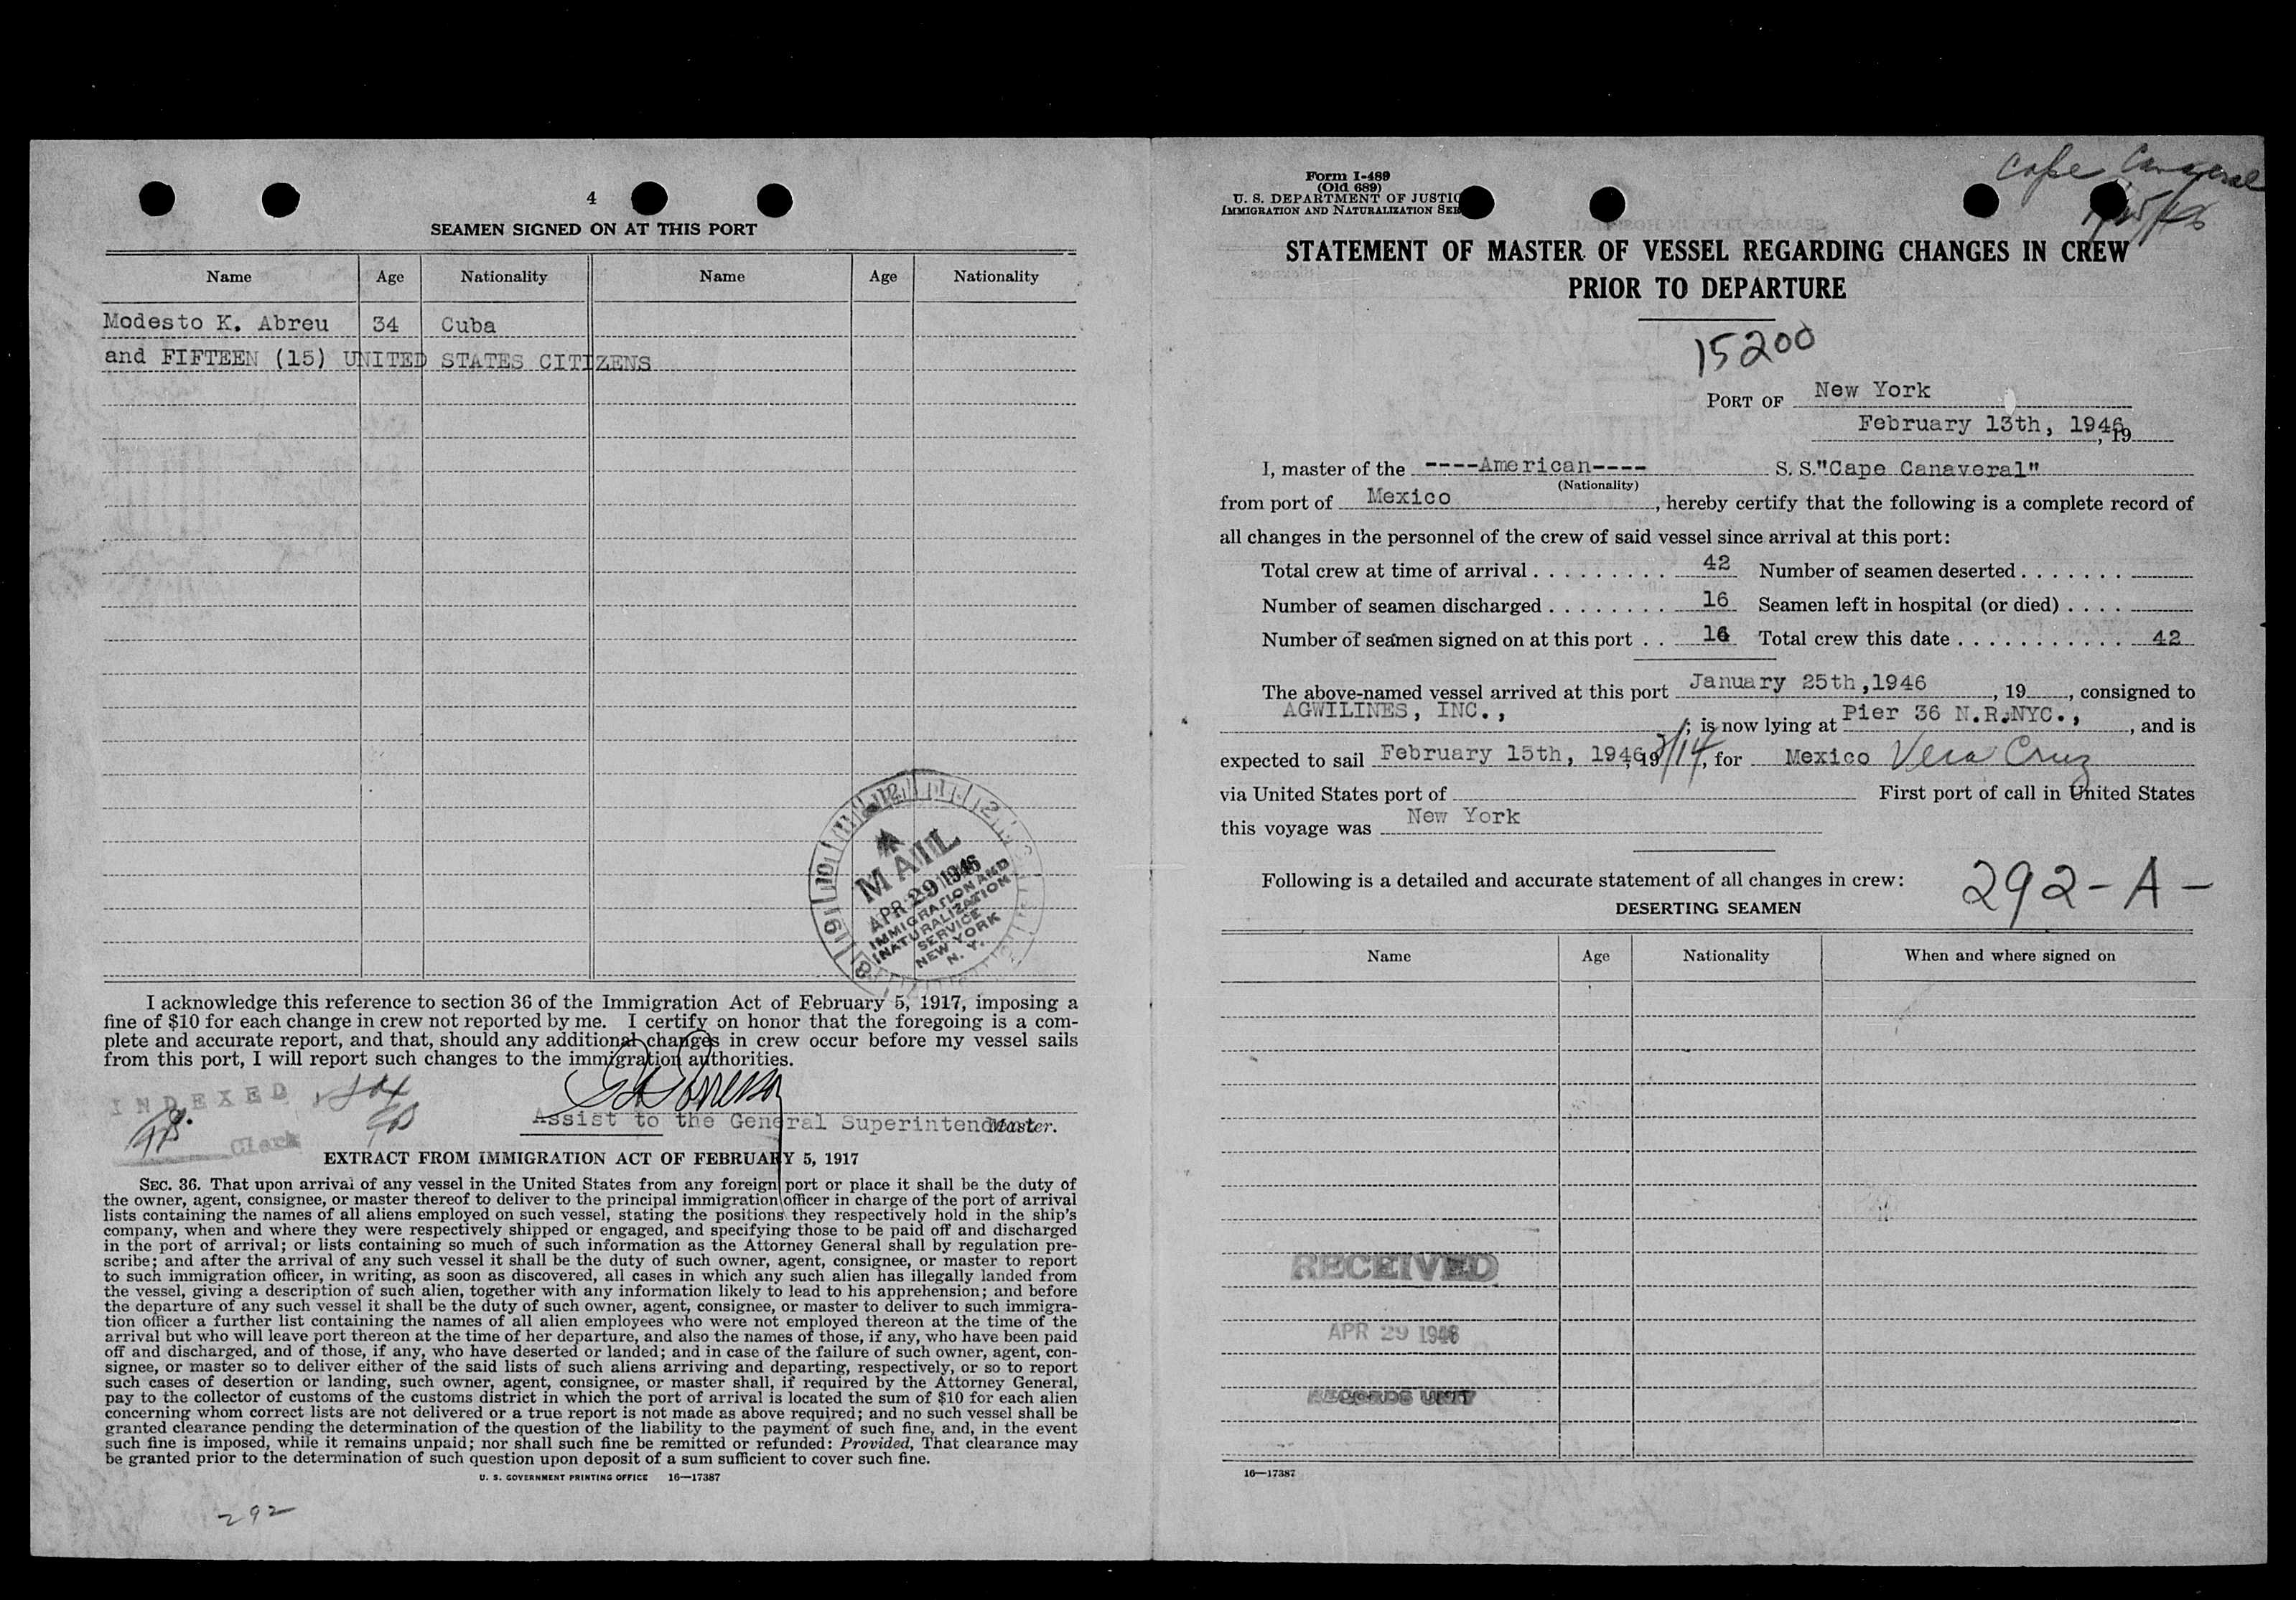 4
SEAMEN SIGNED ON AT THIS PORT
Name Age Nationality Name Age Nationality
Modesto K. Abreu 34 Cuba
and FIFTEEN (15) UNITED STATES CITIZENS
MAIL
APR 29 1946
IMMIGRATION AND
NATURALIZATION
SERVICE
NEW YORK
N. Y.
I acknowledge this reference to section 36 of the Immigration Act of February 5, 1917, imposing a
fine of $10 for each change in crew not reported by me. I certify on honor that the foregoing is a com-
plete and accurate report, and that, should any additional changes in crew occur before my vessel sails
from this port, I will report such changes to the immigration authorities.
INDEXED
Clerk
Assist to the General Superintendent Master.
EXTRACT FROM IMMIGRATION ACT OF FEBRUARY 5, 1917
SEC. 36. That upon arrival of any vessel in the United States from any foreign port or place it shall be the duty of
the owner, agent, consignee, or master thereof to deliver to the principal immigration officer in charge of the port of arrival
lists containing the names of all aliens employed on such vessel, stating the positions they respectively hold in the ship's
company, when and where they were respectively shipped or engaged, and specifying those to be paid off and discharged
in the port of arrival; or lists containing so much of such information as the Attorney General shall by regulation pre-
scribe; and after the arrival of any such vessel it shall be the duty of such owner, agent, consignee, or master to report
to such immigration officer, in writing, as soon as discovered, all cases in which any such alien has illegally landed from
the vessel, giving a description of such alien, together with any information likely to lead to his apprehension; and before
the departure of any such vessel it shall be the duty of such owner, agent, consignee, or master to deliver to such immigra-
tion officer a further list containing the names of all alien employees who were not employed thereon at the time of the
arrival but who will leave port thereon at the time of her departure, and also the names of those, if any, who have been paid
off and discharged, and of those, if any, who have deserted or landed; and in case of the failure of such owner, agent, con-
signee, or master so to deliver either of the said lists of such aliens arriving and departing, respectively, or so to report
such cases of desertion or landing, such owner, agent, consignee, or master shall, if required by the Attorney General,
pay to the collector of customs of the customs district in which the port of arrival is located the sum of $10 for each alien
concerning whom correct lists are not delivered or a true report is not made as above required; and no such vessel shall be
granted clearance pending the determination of the question of the liability to the payment of such fine, and, in the event
such fine is imposed, while it remains unpaid; nor shall such fine be remitted or refunded: Provided, That clearance may
be granted prior to the determination of such question upon deposit of a sum sufficient to cover such fine.
U. S. GOVERNMENT PRINTING OFFICE 16—17387
292
Cape Canaveral
Form I-489
(Old 689)
U. S. DEPARTMENT OF JUSTIC
IMMIGRATION AND NATURALIZATION SER
STATEMENT OF MASTER OF VESSEL REGARDING CHANGES IN CREW
PRIOR TO DEPARTURE
15200
PORT OF New York
February 13th, 1946, 19
I, master of the ----American---- S. S. "Cape Canaveral"
(Nationality)
from port of Mexico, hereby certify that the following is a complete record of
all changes in the personnel of the crew of said vessel since arrival at this port:
Total crew at time of arrival . . . . . . . . . 42 Number of seamen deserted . . . . . . .
Number of seamen discharged . . . . . . . . 16 Seamen left in hospital (or died) . . . .
Number of seamen signed on at this port . . 16 Total crew this date . . . . . . . . . . . . 42
The above-named vessel arrived at this port January 25th,1946, 19, consigned to
AGWILINES, INC., ; is now lying at Pier 36 N.R.NYC., , and is
expected to sail February 15th, 1946, 19 2/14, for Mexico Vera Cruz
via United States port of First port of call in United States
this voyage was New York
Following is a detailed and accurate statement of all changes in crew: 292-A-
DESERTING SEAMEN
Name Age Nationality When and where signed on
RECEIVED
APR 29 1946
RECORDS UNIT
16—17387